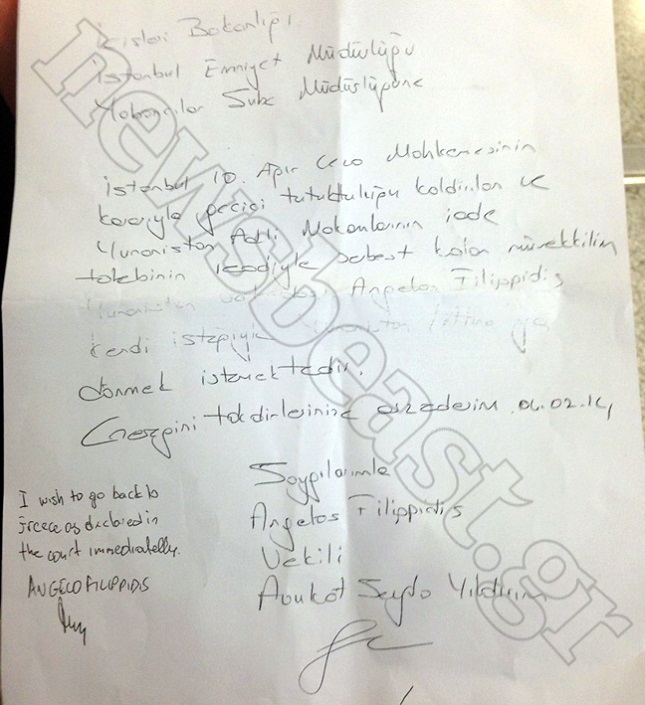 İçişleri Bakanlığı
İstanbul Emniyet Müdürlüğü
Yabancılar Şube Müdürlüğüne
İstanbul 10. Ağır Ceza Mahkemesinin
kararıyla geçici tutukluluğu kaldırılan ve
Yunanistan Adli Makamlarının iade
talebinin reddiyle serbest kalan müvekkilim
Yunanistan vatandaşı Angelos Filippidis
kendi isteğiyle
dönmek istemektedir.
Gereğini takdirlerinize arz ederim. 04.02.14
Saygılarımla
Angelos Filippidis
Vekili
Avukat Seyda Yıldırım
I wish to go back to
Greece as declared in
the court immediatelly.
ANGELO FILIPPIDIS
newsbeast.gr